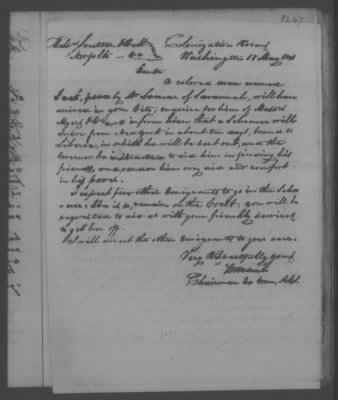 1247
Colonization Rooms
Norfolk Va Washington 18 May 184
Gent
A colored man named
Jack, freed by Mr Lamar of Savannah, will have
arrived in your City, enquire for him of Messrs
Myers & Co and inform him that a Schooner will
arrive from New York in about ten days, bound to
Liberia, in which he will be sent out, and the
Governor be instructed to aid him in finding his
friends, and render him every aid and comfort
in his power.
I expect five other Emigrants to go in the Scho
oner, to remain on the Coast, you will be
requested to aid us with your friendly services
to get her off.
I will direct the other Emigrants to your care.
Very Respectfully yours
Chairman Ex Com, A.C.S.